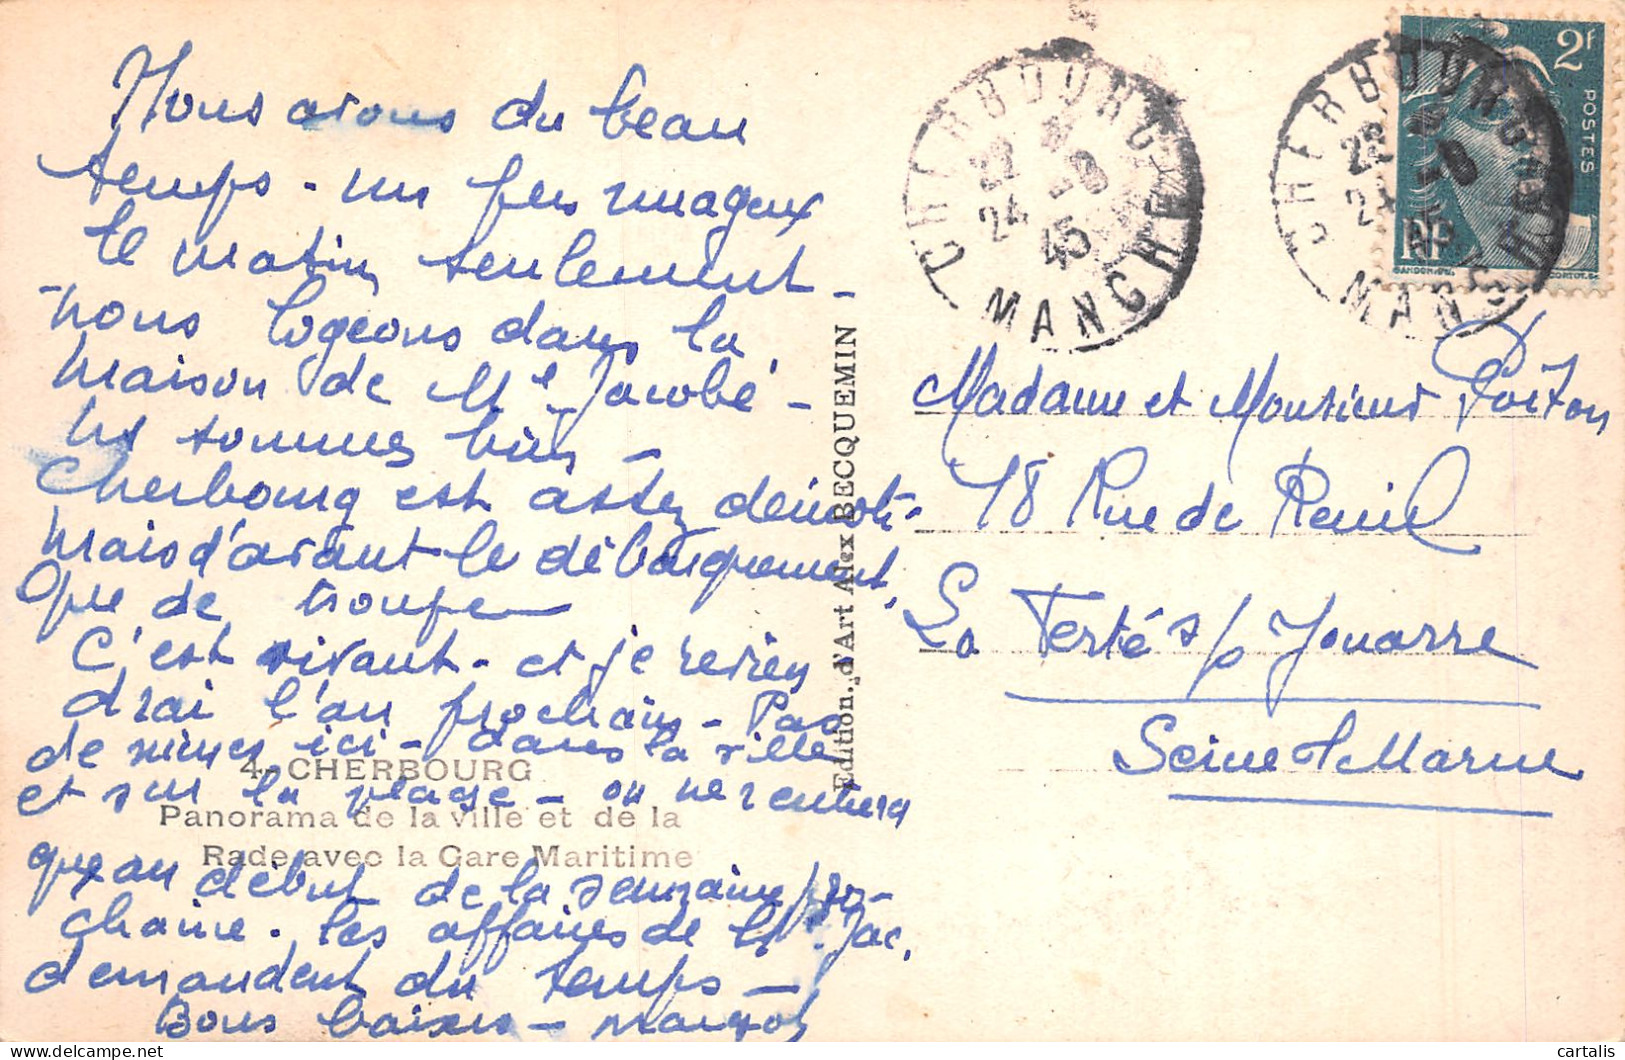 Nous avons du beau
temps - un peu nuageux
le matin seulement -
nous logeons dans la
maison de Me Jacobé -
ns sommes bien -
Cherbourg est assez démoli -
mais d'avant le débarquement
que de troupe
C'est vivant - et je revien
drai l'an prochain - Pas
de mines ici - dans la ville
et sur la plage - on ne rentrera
qu'au début de la semaine pro-
chaine. Les affaires de Me Jac.
demandent du temps -
Bons baisers - Margot
4. - CHERBOURG
Panorama de la ville et de la
Rade avec la Gare Maritime
Edition d'Art Alex BECQUEMIN
CHERBOURG
22
24 -8
45
MANCHE
CHERBOURG
22
24 -8
45
MANCHE
2f
POSTES
RF
GANDON
CORTOT
Madame et Monsieur Poiton
18 Rue de Reuil
La Ferté s/s Jouarre
Seine et Marne
cartalis